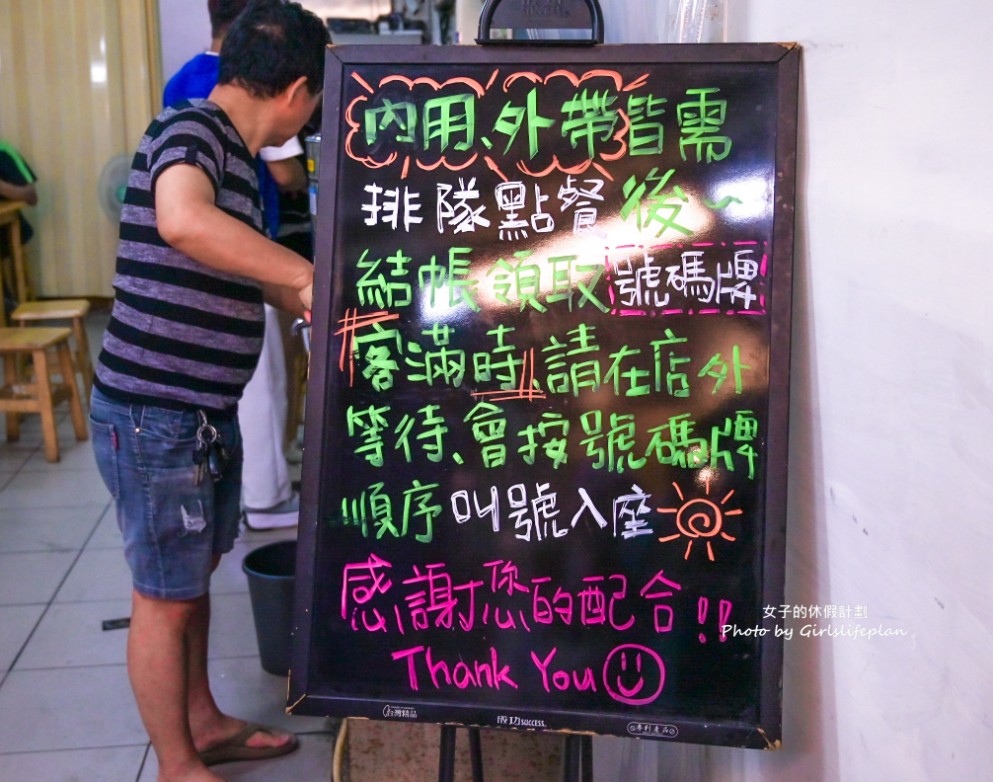 內用、外帶皆需
排隊點餐後~
結帳領取號碼牌
客滿時、請在店外
等待、會按號碼牌
順序叫號入座
感謝您的配合!!
Thank You
女子的休假計劃
Photo by Girlslifeplan
台灣精品
成功SUCCESS
專利產品